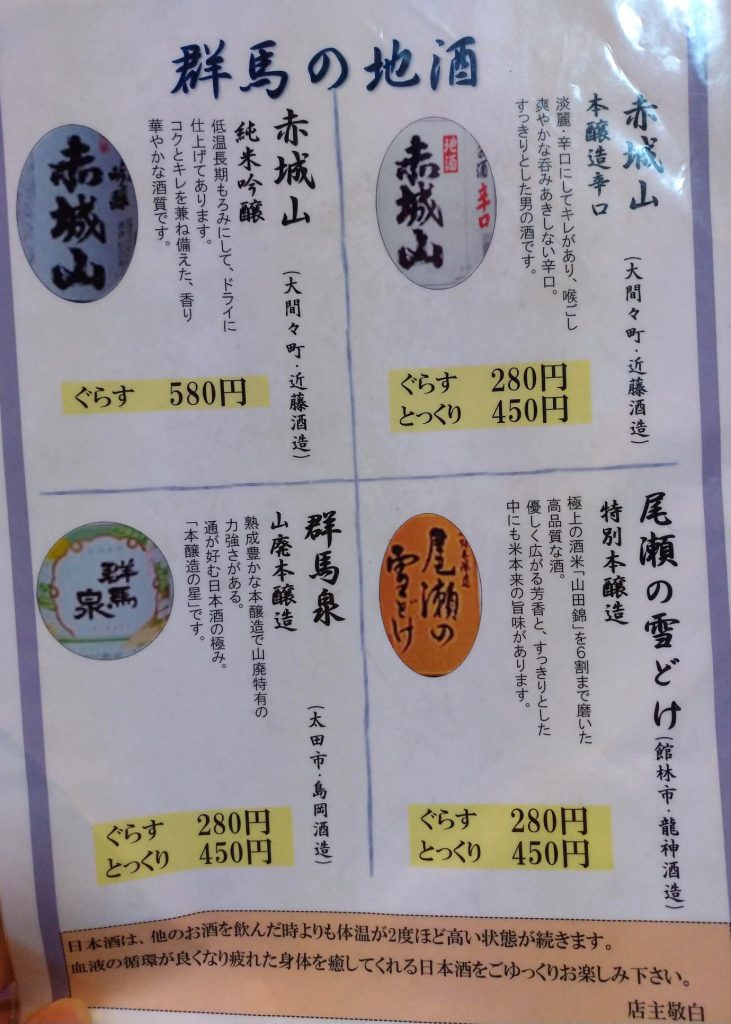 群馬の地酒
赤城山
本醸造辛口
(大間々町・近藤酒造)
淡麗・辛口にしてキレがあり、喉ごし
爽やかな呑みあきしない辛口。
すっきりとした男の酒です。
地酒
の酒 辛口
赤城山
ぐらす 280円
とっくり 450円
赤城山
純米吟醸
(大間々町・近藤酒造)
低温長期もろみにして、ドライに
仕上げてあります。
コクとキレを兼ね備えた、香り
華やかな酒質です。
吟醸
赤城山
ぐらす 580円
尾瀬の雪どけ
特別本醸造
(館林市・龍神酒造)
極上の酒米「山田錦」を6割まで磨いた
高品質な酒。
優しく広がる芳香と、すっきりとした
中にも米本来の旨味があります。
尾瀬の
雪どけ
ぐらす 280円
とっくり 450円
群馬泉
山廃本醸造
(太田市・島岡酒造)
熟成豊かな本醸造で山廃特有の
力強さがある。
通が好む日本酒の極み。
「本醸造の星」です。
群馬
泉
ぐらす 280円
とっくり 450円
日本酒は、他のお酒を飲んだ時よりも体温が2度ほど高い状態が続きます。
血液の循環が良くなり疲れた身体を癒してくれる日本酒をごゆっくりお楽しみ下さい。
店主敬白